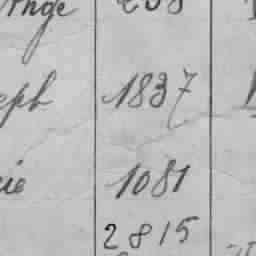 Ange 208
eph 1837
cie 1081
2815